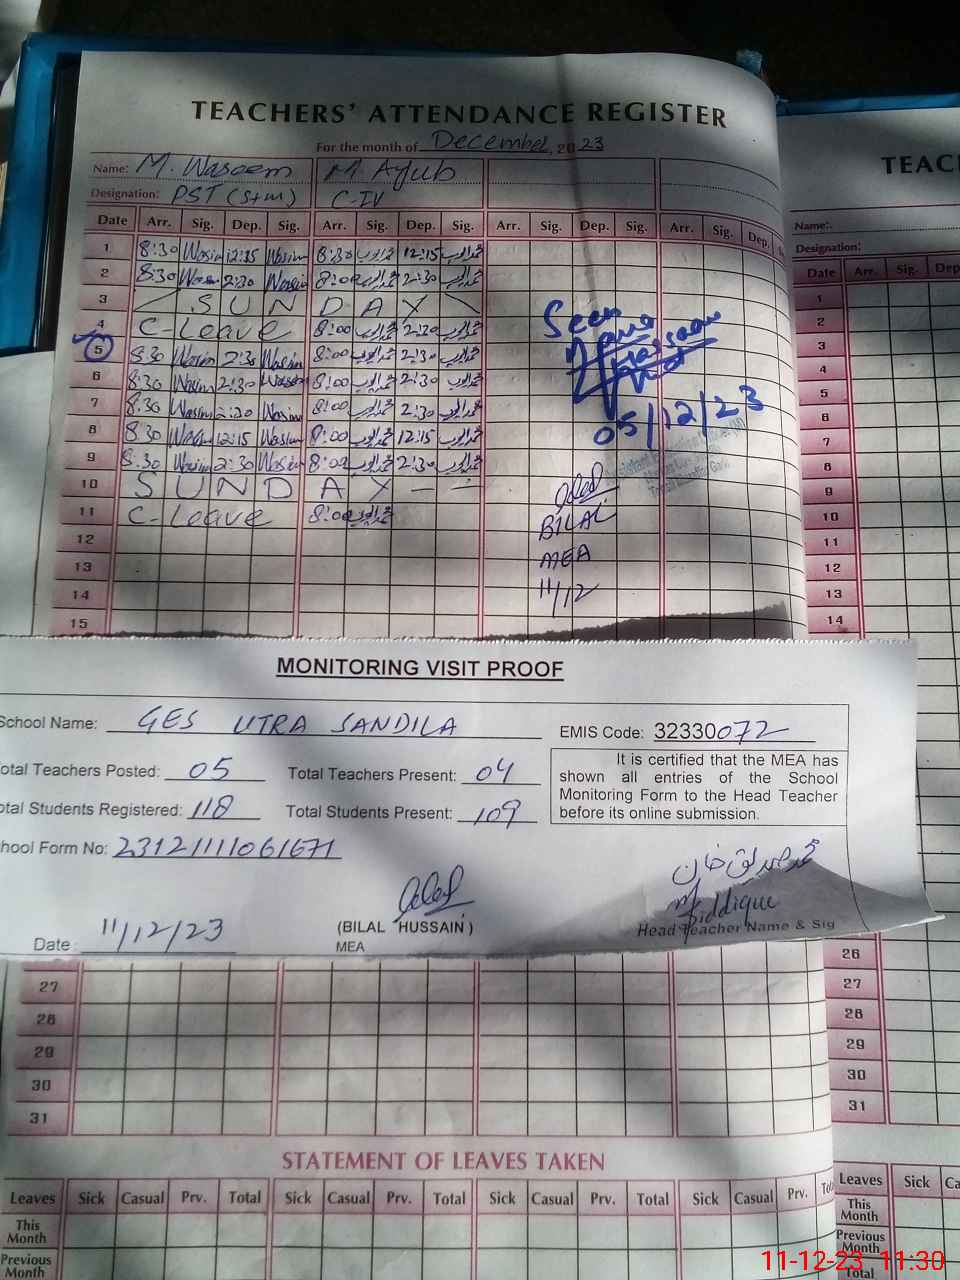 TEACHERS' ATTENDANCE REGISTER
For the month of December, 2023
Name: M. Waseem M. Ayub
Designation: PST (S+M) C-IV
Date Arr. Sig. Dep. Sig. Arr. Sig. Dep. Sig. Arr. Sig. Dep. Sig. Arr. Sig. Dep. Sig.
1 8:30 Wasim 12:15 Wasim 8:30 محمد ایوب 12:15 محمد ایوب
2 8:30 Wasim 2:30 Wasim 8:00 محمد ایوب 2:30 محمد ایوب
3 SUNDAY
4 C-Leave 8:00 محمد ایوب 2:30 محمد ایوب
5 8:30 Wasim 2:30 Wasim 8:00 محمد ایوب 2:30 محمد ایوب
6 8:30 Wasim 2:30 Wasim 8:00 محمد ایوب 2:30 محمد ایوب
7 8:30 Wasim 2:30 Wasim 8:00 محمد ایوب 2:30 محمد ایوب
8 8:30 Wasim 12:15 Wasim 8:00 محمد ایوب 12:15 محمد ایوب
9 8:30 Wasim 2:30 Wasim 8:00 محمد ایوب 2:30 محمد ایوب
10 SUNDAY - -
11 C-Leave 8:00 محمد ایوب
12
13
14
15
Seen
05/12/23
BILAL
MEA
11/12
TEAC
Name:
Designation:
Date Arr. Sig. Dep
1
2
3
4
5
6
7
8
9
10
11
12
13
14
MONITORING VISIT PROOF
School Name: GES UTRA SANDILA
EMIS Code: 32330072
otal Teachers Posted: 05 Total Teachers Present: 04
otal Students Registered: 118 Total Students Present: 109
hool Form No: 23121111061671
It is certified that the MEA has
shown all entries of the School
Monitoring Form to the Head Teacher
before its online submission.
محمد صدیق خان
M Siddique
Head Teacher Name & Sig
(BILAL HUSSAIN)
MEA
Date: 11/12/23
27
28
29
30
31
26
27
28
29
30
31
STATEMENT OF LEAVES TAKEN
Leaves Sick Casual Prv. Total Sick Casual Prv. Total Sick Casual Prv. Total Sick Casual Prv. Tot
This Month
Previous Month
Leaves Sick Ca
This Month
Previous Month
Total
11-12-23 11:30